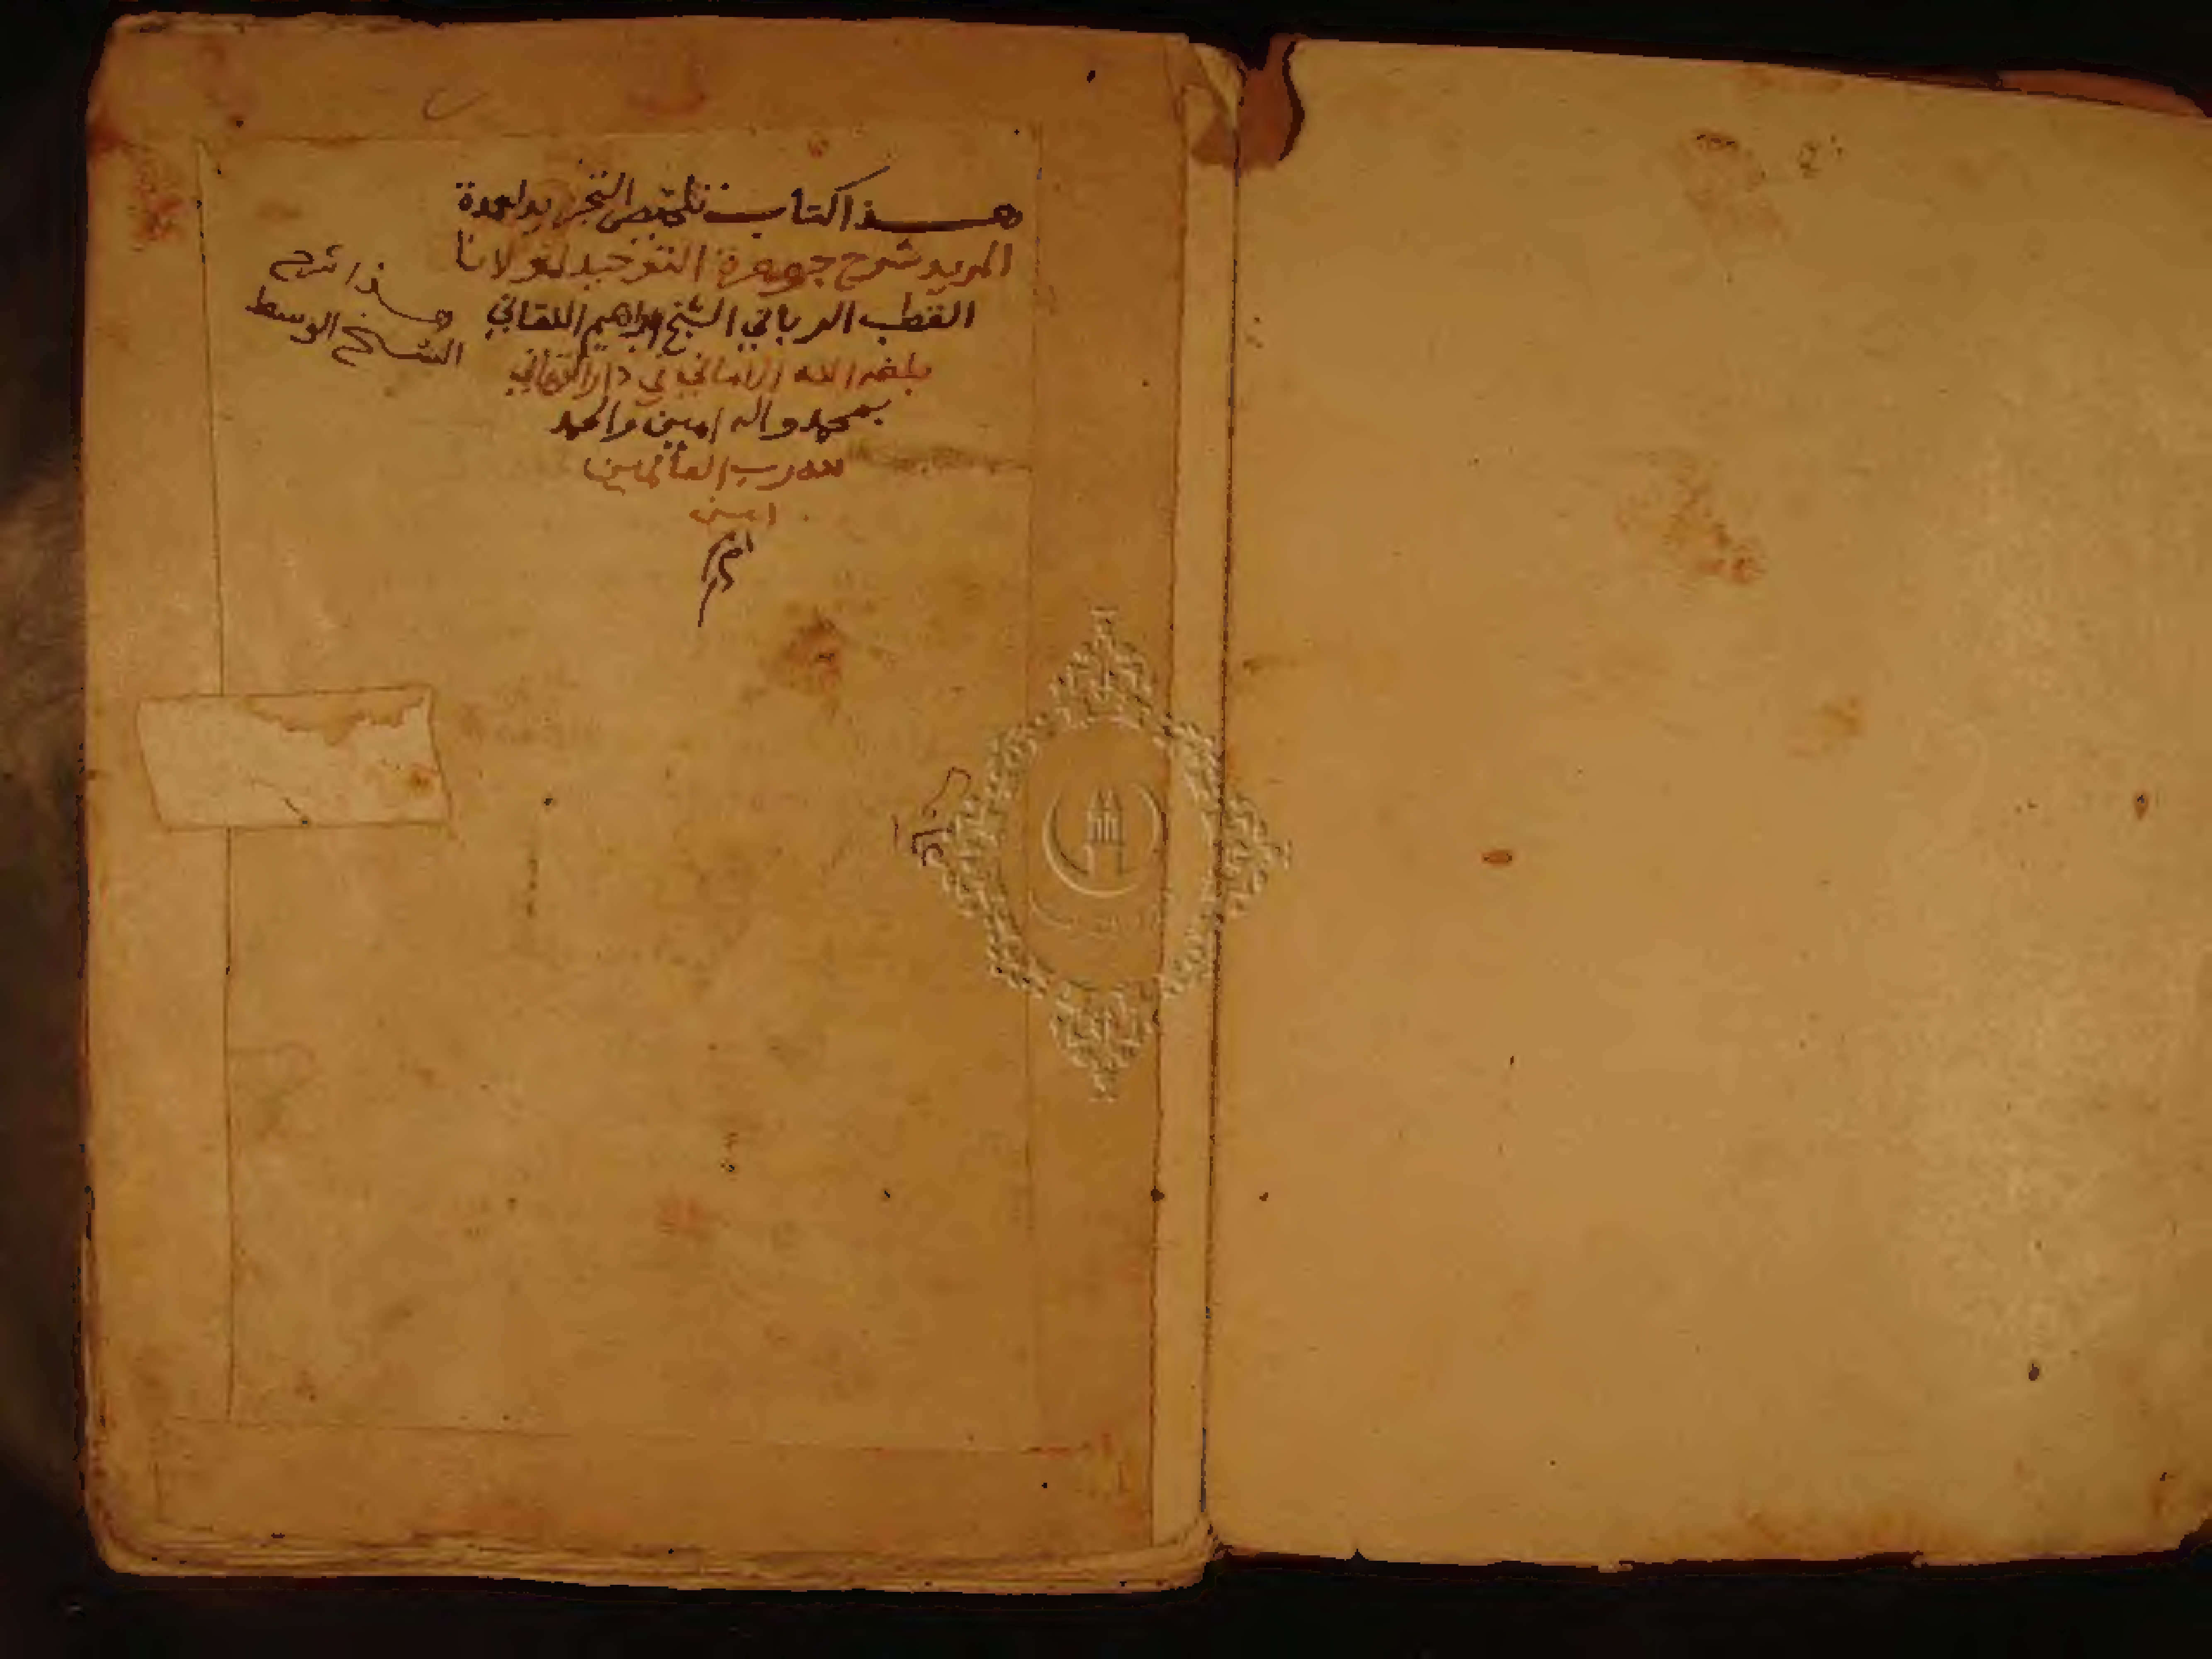 هذا كتاب تلخيص التجريد لعمدة
المريد شرح جوهرة التوحيد لمولانا
القطب الرباني الشيخ ابراهيم اللقاني
بلغه الله الاماني في دار التهاني
بمحمد واله امين والحمد
لله رب العالمين
امين
هذا شرح
الشيخ الوسط